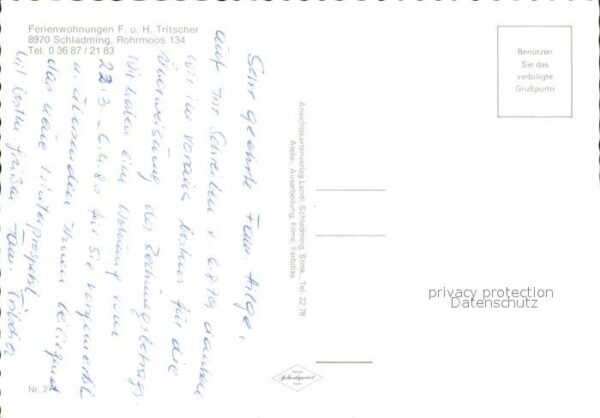 Ferienwohnungen F. u. H. Tritscher
8970 Schladming, Rohrmoos 134
Tel. 0 36 87 / 21 83
Benützen
Sie das
verbilligte
Grußporto
Sehr geehrte Fam. Hilge,
auf Ihr Schreiben v. 6.8.79 danken
wir im Voraus bestens für die
Überweisung des Rechnungsbetrags.
Wir haben eine Wohnung vom
22.3. - 6.4.80 für Sie vorgemerkt
u. übersenden Ihnen beiliegend
das neue Winterprospekt.
Mit besten Grüßen Fam. Tritscher
Ansichtskartenverlag Landl, Schladming, Stmk., Tel. 22 78
Atelier, Ausarbeitung, Filme, Farbdias
privacy protection
Datenschutz